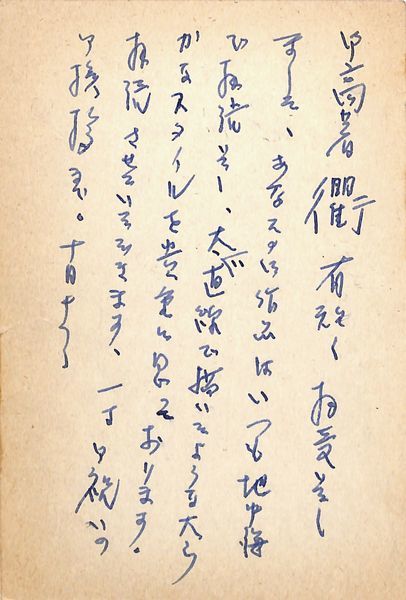 御高著衢有難く拝受致し
ました、あなたの作品はいつも地中海
で拝読致し、太い直線で描いたような大ら
かなスタイルを貴重に思っております。
拝読させていただきます、一寸御祝いの
御挨拶まで。十月十